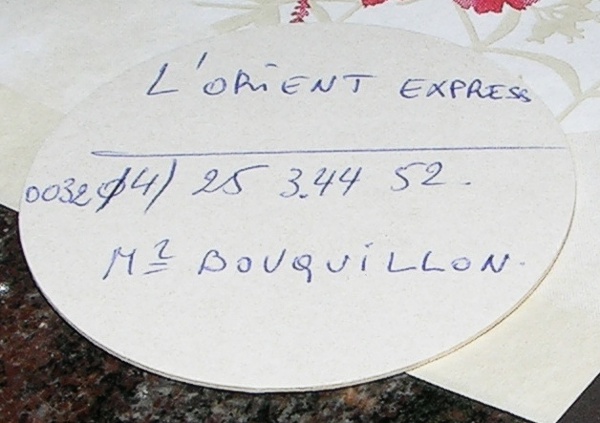 L'ORIENT EXPRESS
0032(04) 25 3.44 52.
Mr BOUQUILLON.